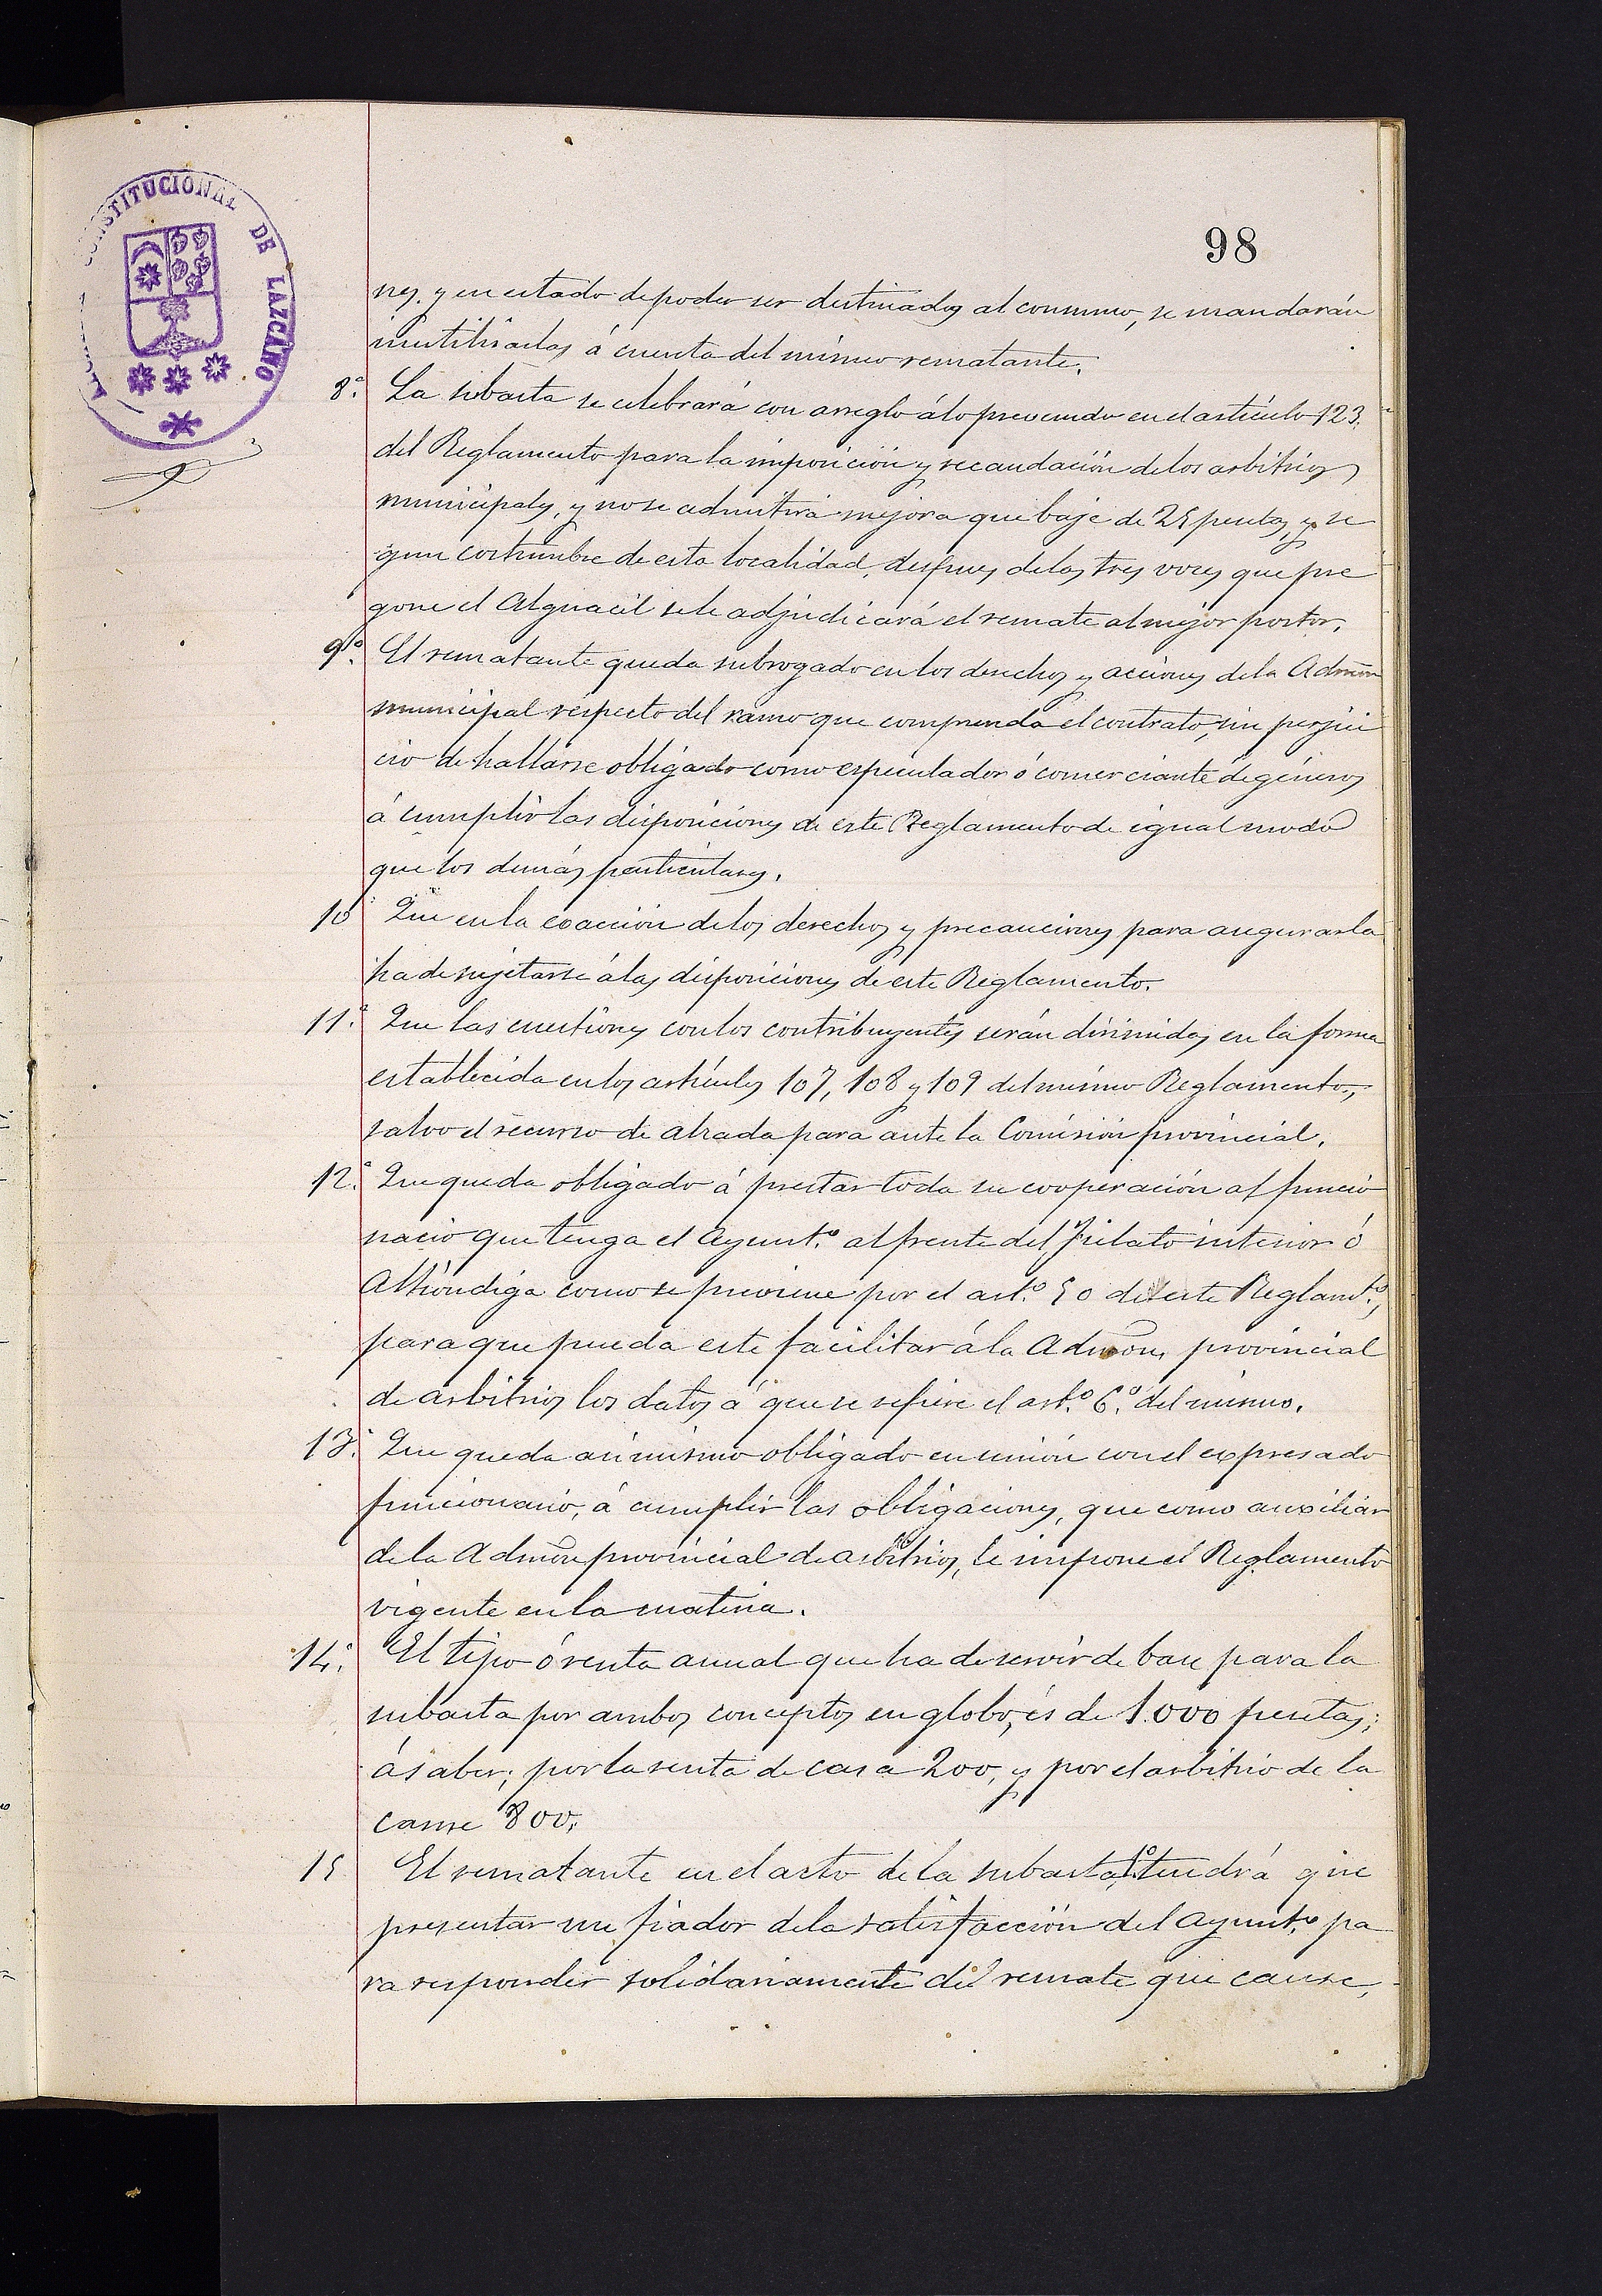 CONSTITUCIONAL DE LAZCANO
98
nes. y en estado de poder ser destinados al consumo, se mandarán
inutilisarlas á cuenta del mismo rematante.
8ª. La subasta se celebrará con arreglo á lo prevenido en el artículo 123
del Reglamento para la imposición y recaudación de los arbitrios
municipales, y no se admitirá mejora que baje de 25 pesetas, y se
gun costumbre de esta localidad, despues de las tres voces que pre
gone el Alguacil se le adjudicará el remate al mejor postor.
9ª. El rematante queda subrogado en los derechos y acciones de la Admón
municipal respecto del ramo que comprenda el contrato, sin perjui
cio de hallarse obligado como especulador ó comerciante de géneros
á cumplir las disposiciones de este Reglamento de igual modo
que los demás particulares.
10 Que en la exacción de los derechos y precauciones para asegurarla
ha de sujetarse á las disposiciones de este Reglamento.
11ª. Que las cuestiones con los contribuyentes serán dirimidas en la forma
establecida en los artículos 107, 108 y 109 del mismo Reglamento,
salvo el recurso de alzada para ante la Comisión provincial.
12ª. Que queda obligado á prestar toda su cooperación al funcio
nario que tenga el Ayuntº. al frente del Fielato interior ó
Alhóndiga como se previene por el artº. 50 de este Reglamtº.,
para que pueda este facilitar á la Admon, provincial
de arbitrios los datos á que se refiere el artº. 6º. del mismo.
13ª. Que queda asimismo obligado en unión con el expresado
funcionario, á cumplir las obligaciones, que como auxiliar
de la Admón provincial de arbitrios, le impone el Reglamento
vigente en la materia.
14ª. El tipo ó renta anual que ha de servir de base para la
subasta por ambos conceptos en globo, es de 1.000 pesetas;
á saber; por la renta de casa 200, y por el arbitrio de la
carne 800.
15 El rematante en el acto de la subasta, tendrá que
presentar un fiador de la satisfacción del Ayuntº. pa
ra responder solidariamente del remate que cause,